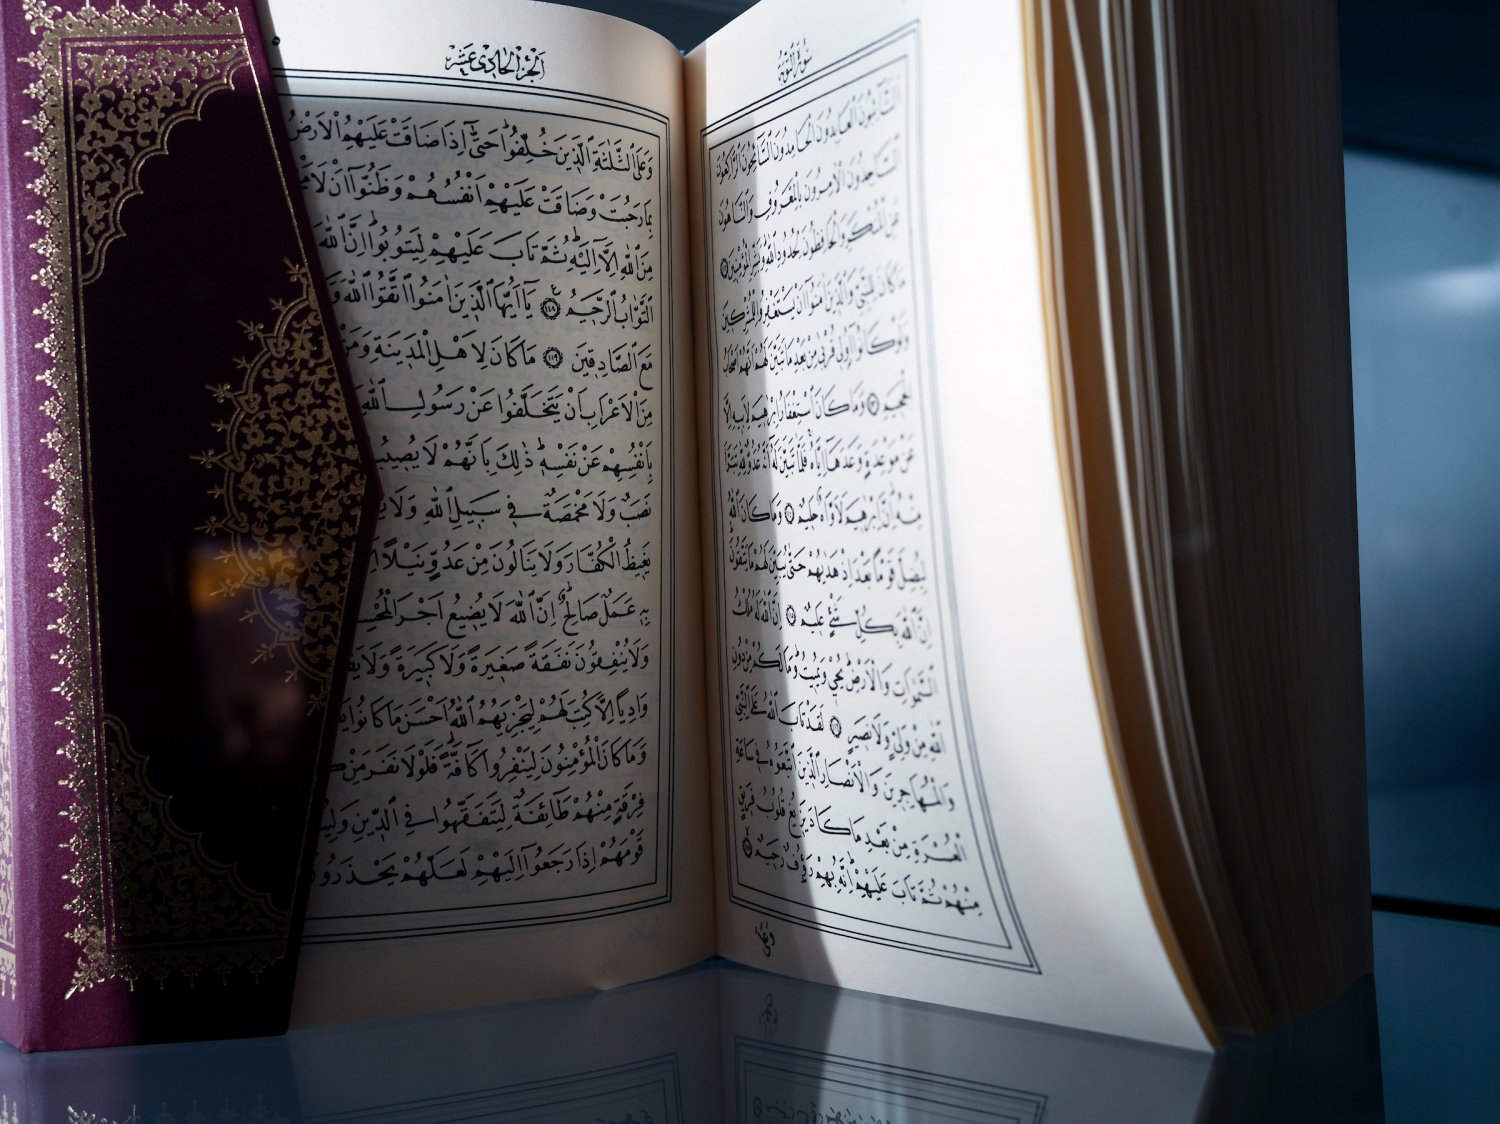 سُورَةُ التَّوْبَةِ
اَلتَّائِبُونَ الْعَابِدُونَ الْحَامِدُونَ السَّائِحُونَ الرَّاكِعُونَ
السَّاجِدُونَ الْاٰمِرُونَ بِالْمَعْرُوفِ وَالنَّاهُونَ
عَنِ الْمُنْكَرِ وَالْحَافِظُونَ لِحُدُودِ اللّٰهِ وَبَشِّرِ الْمُؤْمِنِينَ ١١٢
مَا كَانَ لِلنَّبِيِّ وَالَّذِينَ اٰمَنُوا اَنْ يَسْتَغْفِرُوا لِلْمُشْرِكِينَ
وَلَوْ كَانُوا اُولِي قُرْبٰى مِنْ بَعْدِ مَا تَبَيَّنَ لَهُمْ اَنَّهُمْ اَصْحَابُ
الْجَحِيمِ ١١٣ وَمَا كَانَ اسْتِغْفَارُ اِبْرٰهِيمَ لِاَبِيهِ اِلَّا
عَنْ مَوْعِدَةٍ وَعَدَهَا اِيَّاهُ فَلَمَّا تَبَيَّنَ لَهُ اَنَّهُ عَدُوٌّ لِلّٰهِ تَبَرَّاَ
مِنْهُ اِنَّ اِبْرٰهِيمَ لَاَوَّاهٌ حَلِيمٌ ١١٤ وَمَا كَانَ اللّٰهُ
لِيُضِلَّ قَوْمًا بَعْدَ اِذْ هَدٰيهُمْ حَتّٰى يُبَيِّنَ لَهُمْ مَا يَتَّقُونَ
اِنَّ اللّٰهَ بِكُلِّ شَيْءٍ عَلِيمٌ ١١٥ اِنَّ اللّٰهَ لَهُ مُلْكُ
السَّمٰوَاتِ وَالْاَرْضِ يُحْيِ وَيُمِيتُ وَمَا لَكُمْ مِنْ دُونِ
اللّٰهِ مِنْ وَلِيٍّ وَلَا نَصِيرٍ ١١٦ لَقَدْ تَابَ اللّٰهُ عَلَى النَّبِيِّ
وَالْمُهَاجِرِينَ وَالْاَنْصَارِ الَّذِينَ اتَّبَعُوهُ فِي سَاعَةِ
الْعُسْرَةِ مِنْ بَعْدِ مَا كَادَ يَزِيغُ قُلُوبُ فَرِيقٍ
مِنْهُمْ ثُمَّ تَابَ عَلَيْهِمْ اِنَّهُ بِهِمْ رَؤُفٌ رَحِيمٌ ١١٧
وَعَلَى
اَلْجُزْءُ الْحَادِي عَشَرَ
وَعَلَى الثَّلٰثَةِ الَّذِينَ خُلِّفُوا حَتّٰى اِذَا ضَاقَتْ عَلَيْهِمُ الْاَرْضُ
بِمَا رَحُبَتْ وَضَاقَتْ عَلَيْهِمْ اَنْفُسُهُمْ وَظَنُّوا اَنْ لَا
مِنَ اللّٰهِ اِلَّا اِلَيْهِ ثُمَّ تَابَ عَلَيْهِمْ لِيَتُوبُوا اِنَّ اللّٰهَ
التَّوَّابُ الرَّحِيمُ ١١٨ يَا اَيُّهَا الَّذِينَ اٰمَنُوا اتَّقُوا اللّٰهَ وَ
مَعَ الصَّادِقِينَ ١١٩ مَا كَانَ لِاَهْلِ الْمَدِينَةِ وَمَنْ
مِنَ الْاَعْرَابِ اَنْ يَتَخَلَّفُوا عَنْ رَسُولِ اللّٰهِ
بِاَنْفُسِهِمْ عَنْ نَفْسِهِ ذٰلِكَ بِاَنَّهُمْ لَا يُصِيبُ
نَصَبٌ وَلَا مَخْمَصَةٌ فِي سَبِيلِ اللّٰهِ وَلَا
يَغِيظُ الْكُفَّارَ وَلَا يَنَالُونَ مِنْ عَدُوٍّ نَيْلًا
بِهِ عَمَلٌ صَالِحٌ اِنَّ اللّٰهَ لَا يُضِيعُ اَجْرَ الْمُحْسِ
وَلَا يُنْفِقُونَ نَفَقَةً صَغِيرَةً وَلَا كَبِيرَةً وَلَا
وَادِيًا اِلَّا كُتِبَ لَهُمْ لِيَجْزِيَهُمُ اللّٰهُ اَحْسَنَ مَا كَانُوا
وَمَا كَانَ الْمُؤْمِنُونَ لِيَنْفِرُوا كَافَّةً فَلَوْلَا نَفَرَ مِنْ
فِرْقَةٍ مِنْهُمْ طَائِفَةٌ لِيَتَفَقَّهُوا فِي الدِّينِ
قَوْمَهُمْ اِذَا رَجَعُوا اِلَيْهِمْ لَعَلَّهُمْ يَحْذَرُونَ